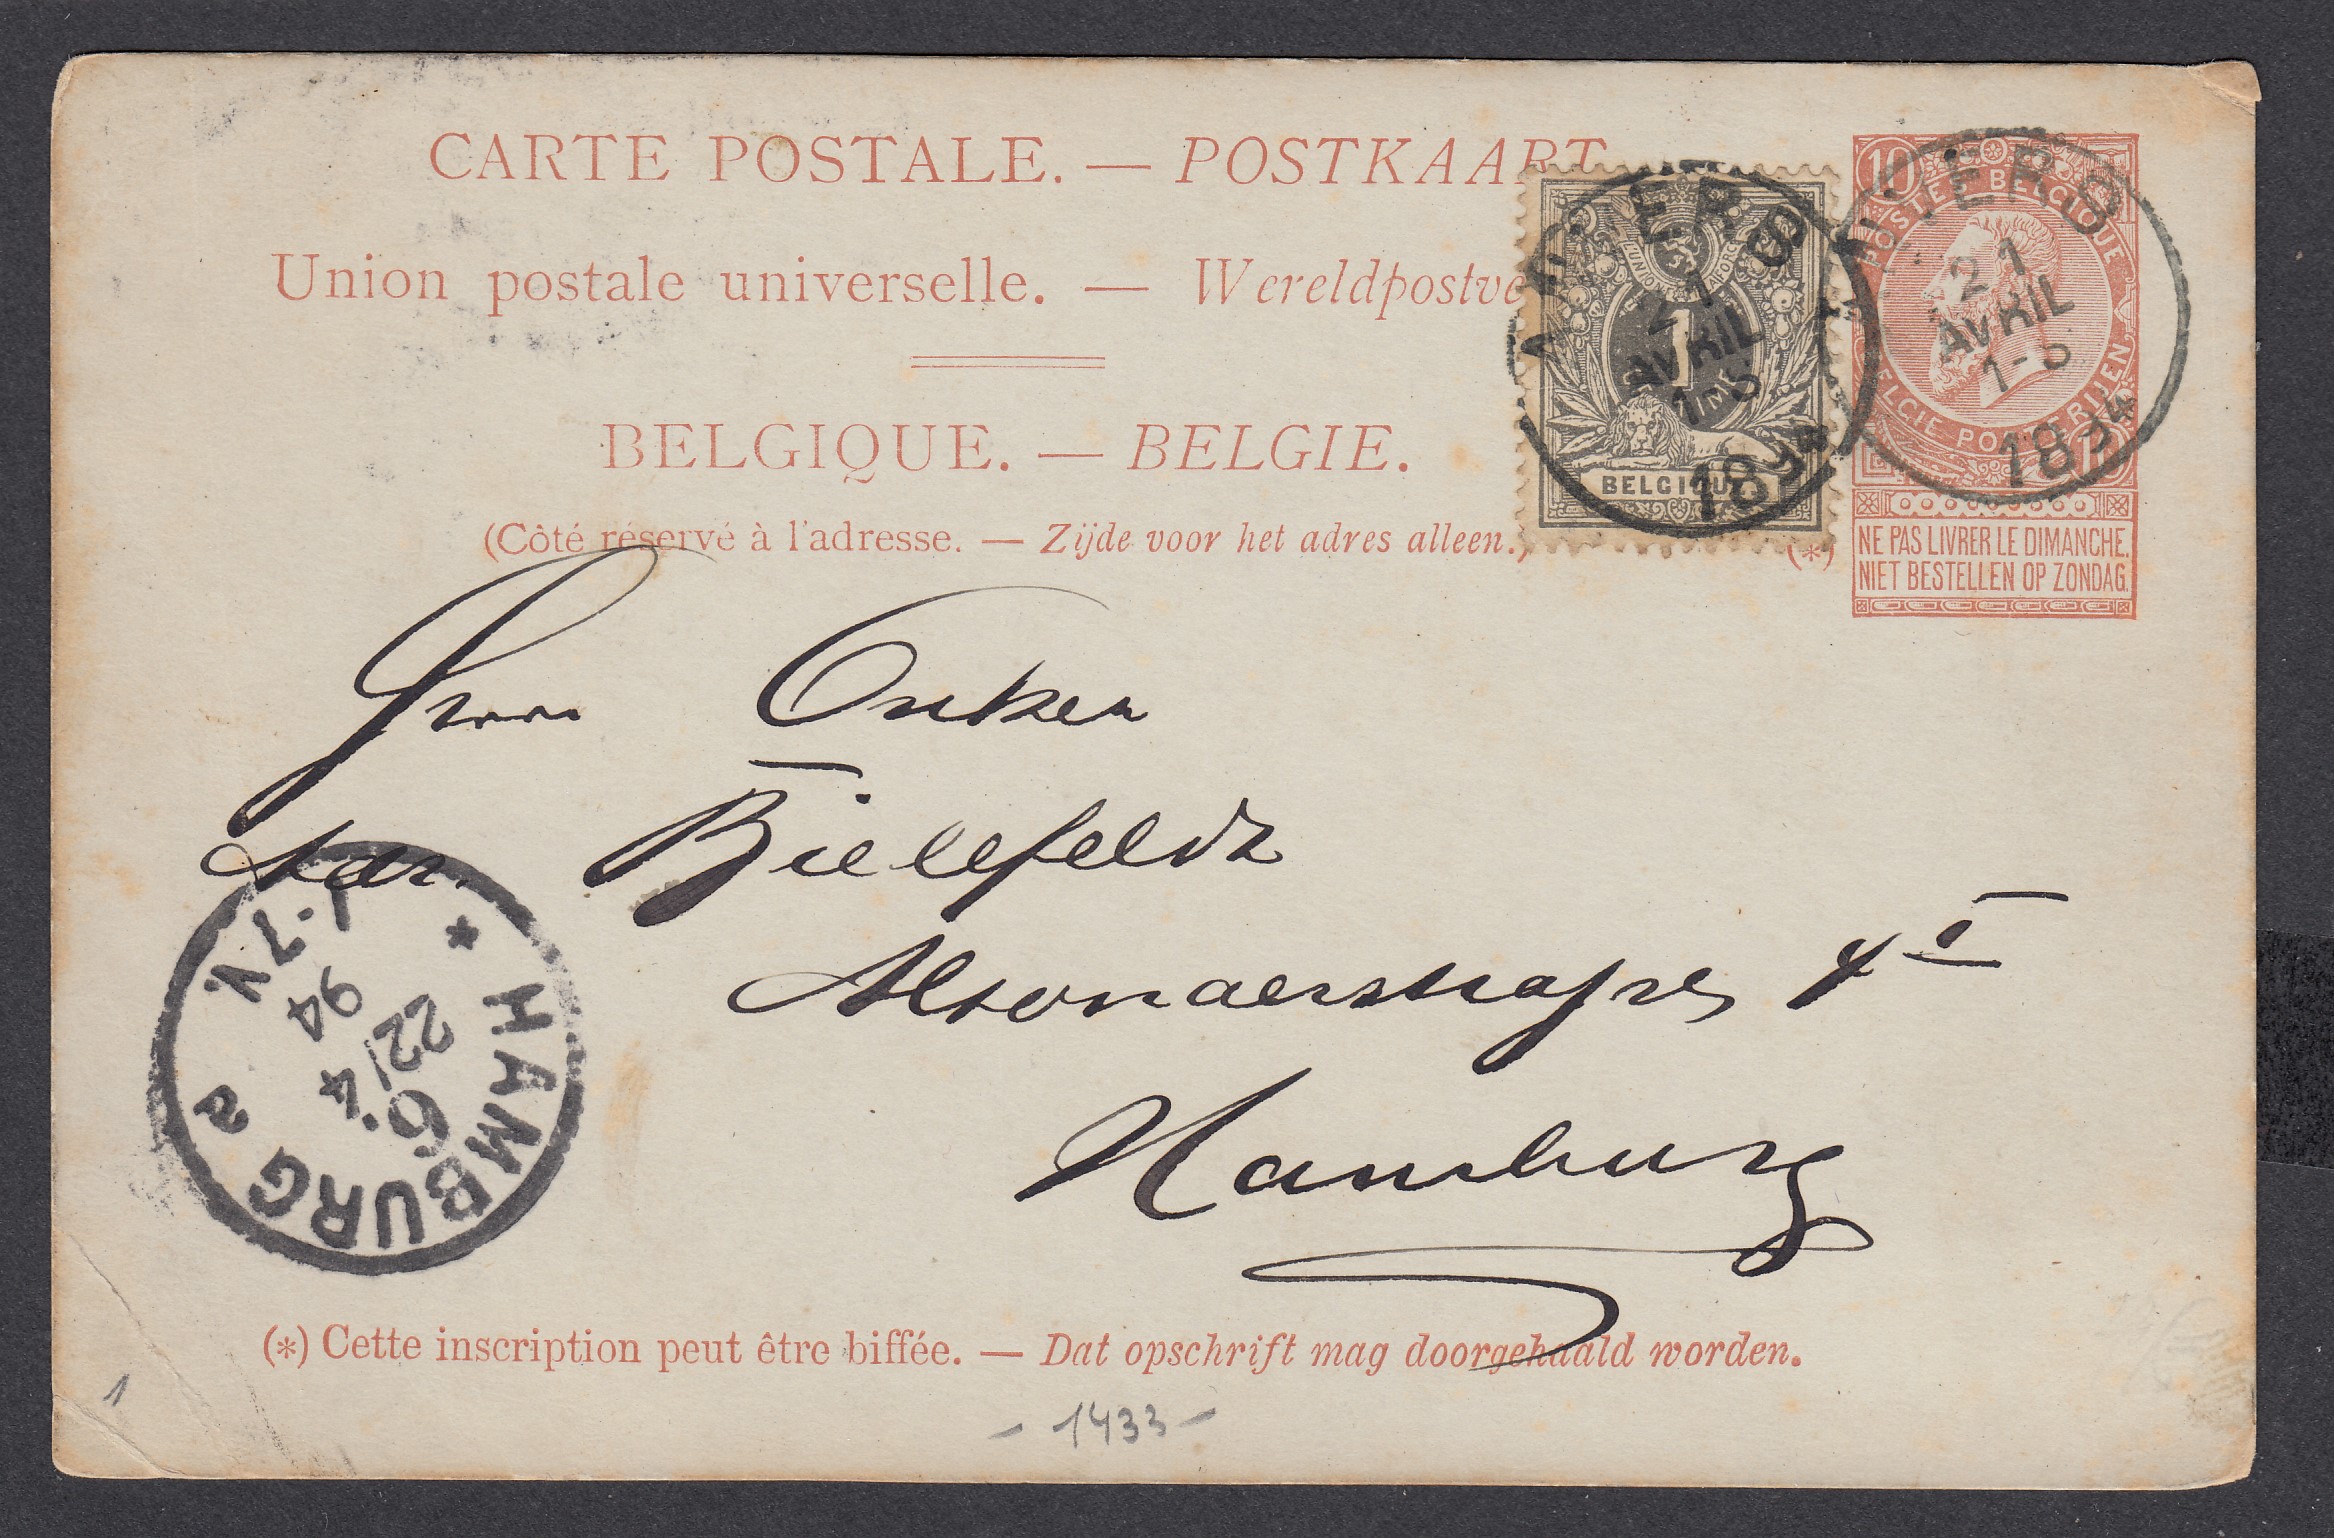 CARTE POSTALE. — POSTKAART
Union postale universelle. — Wereldpostve
BELGIQUE. — BELGIE.
(Côté réservé à l'adresse. — Zijde voor het adres alleen.)
L'UNION FAIT LA FORCE
1
BELGIQUE
ANVERS
21
AVRIL
1-S
1894
10
POSTES BELGIQUE
BELGIE POSTERIJEN
10
ANVERS
21
AVRIL
1-S
1894
(*) NE PAS LIVRER LE DIMANCHE.
NIET BESTELLEN OP ZONDAG.
Herrn Onken
adr. Bielefeldt
Altonaerstrasse 4 I
Hamburg
* HAMBURG a
6.
22/4
94
6-7 N.
(*) Cette inscription peut être biffée. — Dat opschrift mag doorgehaald worden.
1
- 1433 -